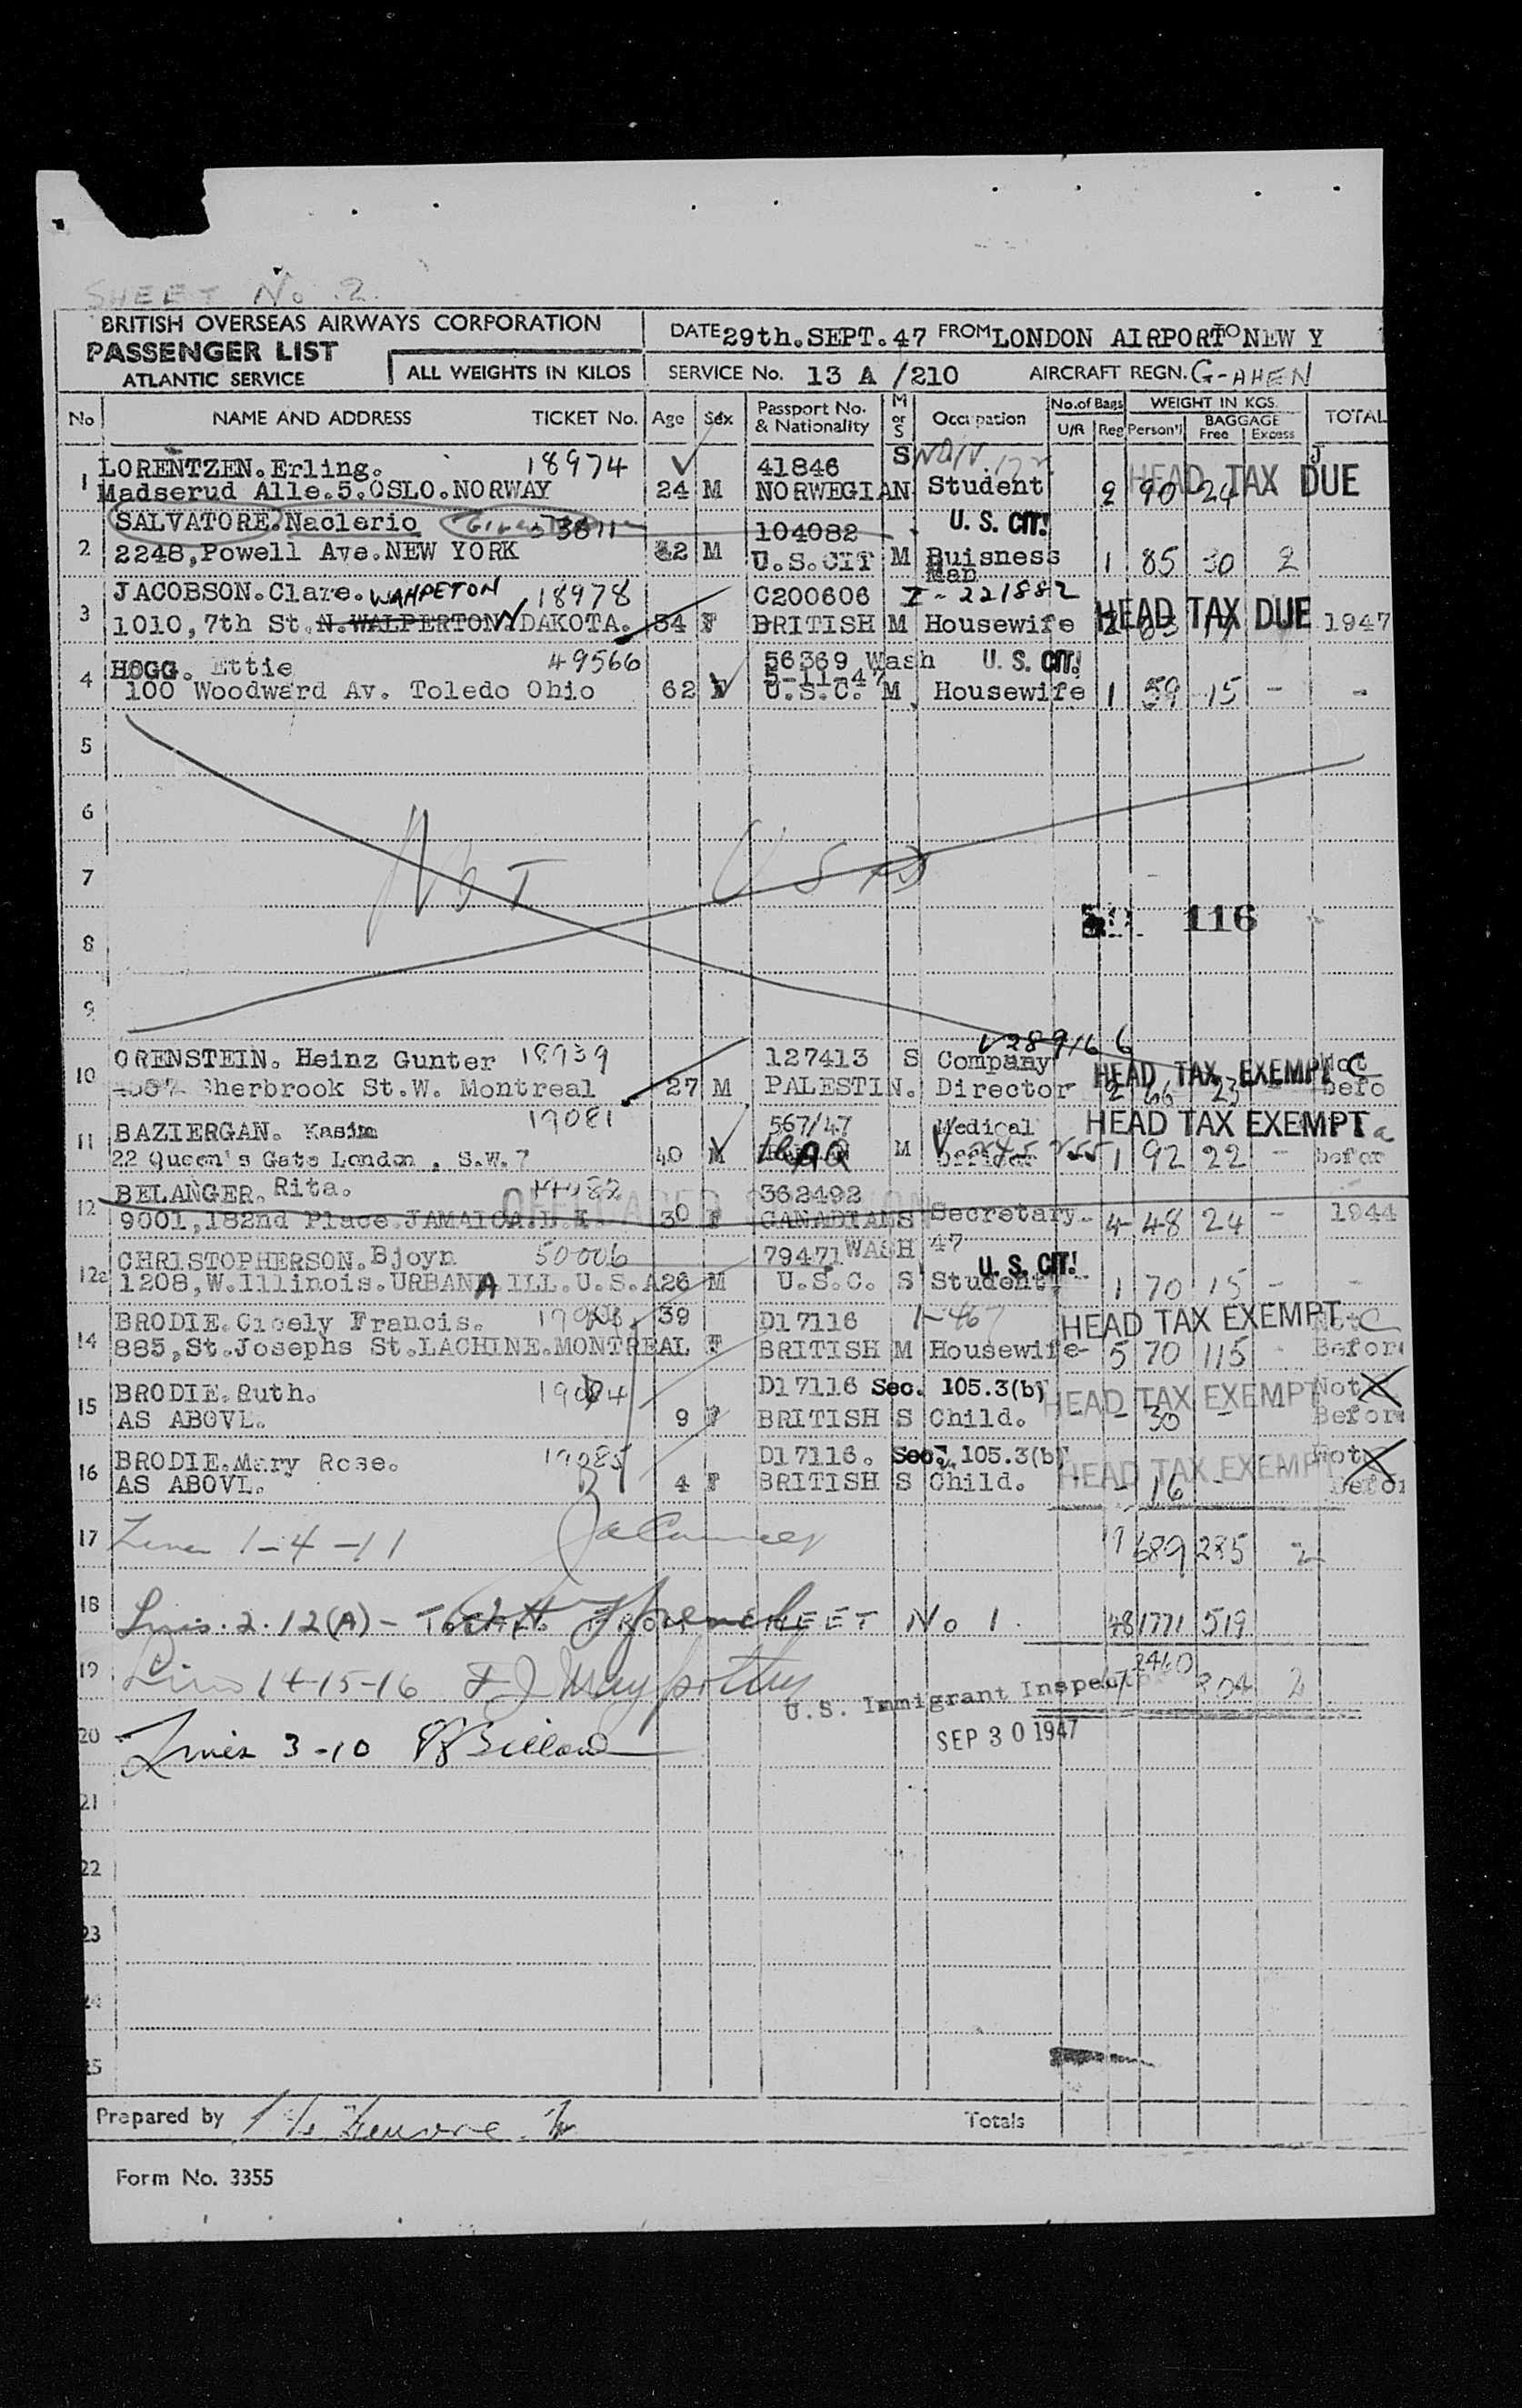 SHEET No. 2.
BRITISH OVERSEAS AIRWAYS CORPORATION
PASSENGER LIST
ATLANTIC SERVICE
ALL WEIGHTS IN KILOS
DATE 29th.SEPT.47 FROM LONDON AIRPORT TO NEW Y
SERVICE No. 13 A /210 AIRCRAFT REGN. G-AHEN
No NAME AND ADDRESS TICKET No. Age Sex Passport No. & Nationality M or S Occupation No.of Bags U/R Reg WEIGHT IN KGS. Person'l BAGGAGE Free Excess TOTAL
1 LORENTZEN.Erling. 18974 41846 S
Madserud Alle.5.OSLO.NORWAY 24 M NORWEGIAN Student 2 90 24 HEAD TAX DUE
SALVATORE.Naclerio 104082 U. S. CIT!
2 2248,Powell Ave.NEW YORK M U.S.CIT M Buisness Man 1 85 30 2
JACOBSON.Clare. WAHPETON 18978 C200606 I-221882
3 1010,7th St.N.WALPERTON DAKOTA. 54 F BRITISH M Housewife HEAD TAX DUE 1947
HOGG. Ettie 49566 56369 Wash U. S. CIT!
5-11-47
4 100 Woodward Av. Toledo Ohio 62 F U.S.C. M Housewife 1 59 15 - -
5
6
7 NOT USED
116
8
9
ORENSTEIN. Heinz Gunter 18939 127413 S Company V289166
10 Sherbrook St.W. Montreal 27 M PALESTIN. Director HEAD TAX EXEMPT 2 66 23 Not befo
11 BAZIERGAN. Kasim 19081 567/47 Medical HEAD TAX EXEMPT
22 Queen's Gate London . S.W.7 40 M IRAQ M Officer 1 92 22 - befor
BELANGER. Rita. 362492
12 9001,182nd Place.JAMAICA.L.I. 30 F CANADIAN S Secretary 4 48 24 - 1944
CHRISTOPHERSON.Bjoyn 50006 79471 WASH 47 U. S. CIT!
12a 1208,W.Illinois.URBANA ILL.U.S.A 26 M U.S.C. S Student 1 70 15 - -
BRODIE.Cicely Francis. 39 D17116 HEAD TAX EXEMPT Not
14 885,St.Josephs St.LACHINE.MONTREAL F BRITISH M Housewife 5 70 115 Before
15 BRODIE.Ruth. 19084 D17116 Sec. 105.3(b) HEAD TAX EXEMPT Not
AS ABOVE. 9 F BRITISH S Child. - 30 - - Before
16 BRODIE.Mary Rose. 19085 D17116. Sec. 105.3(b) HEAD TAX EXEMPT Not
AS ABOVE. 4 F BRITISH S Child. - 16 - Befor
17 Lines 1-4-11 17 689 285 2
18 Lines. 2. 12(A) - TOTAL FROM SHEET No 1. 48 1771 519
19 Lines 14-15-16 2460 804 2
U.S. Immigrant Inspector
20 Lines 3-10 SEP 30 1947
21
22
23
24
25
Prepared by Totals
Form No. 3355